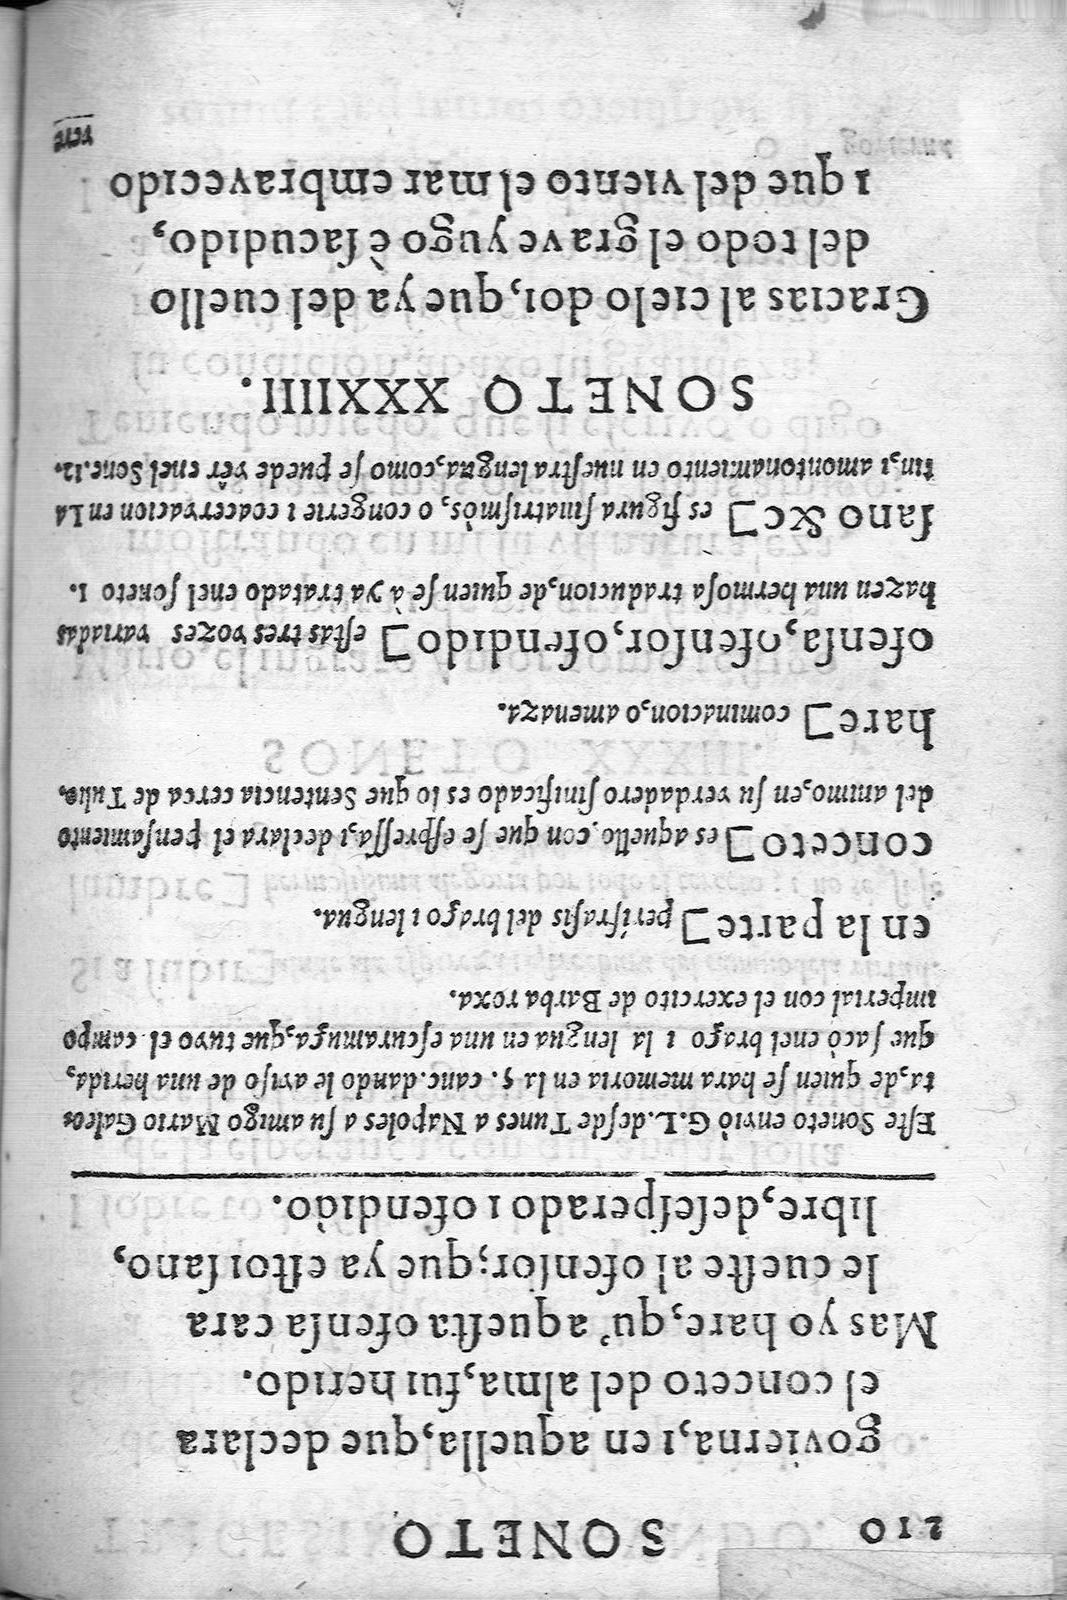 210 SONETO
govierna, i en aquella, que declara
el conceto del alma, fui herido.
Mas yo hare, qu'aquesta ofensa cara
le cueste al ofensor; que ya estoi sano,
libre, desesperado i ofendido.
Este Soneto enviò G.L. desde Tunes a Napoles a su amigo Mario Galeo
ta, de quien se hara memoria en la 5. canc. dando le aviso de una herida,
que sacò en el braço i la lengua en una escaramuça, que tuvo el campo
imperial con el exercito de Barbaroxa.
en la parte] perifrasis del braço i lengua.
conceto] es aquello con que se espressa, i declara el pensamiento
del animo, en su verdadero sinificado es lo que Sentencia cerca de Tulio.
hare] cominacion, o amenaza.
ofensa, ofensor, ofendido] estas tres vozes variadas
hazen una hermosa traducion, de quien se à ya tratado en el soneto 1.
sano &c] es figura sinatrismòs, o congerie i coacervacion en La
tin, i amontonamiento en nuestra lengua, como se puede vèr en el Sone. 12.
SONETO XXXIIII.
Gracias al cielo doi, que ya del cuello
del todo el grave yugo è sacudido,
i que del viento el mar embravecido
vere